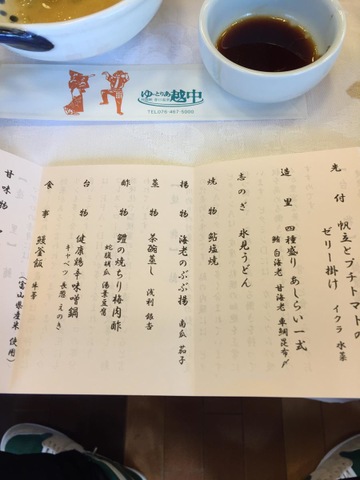 ゆ〜とりあ越中
TEL076-467-5000
先付 帆立とプチトマトの
ゼリー掛け イクラ 水菜
造里 四種盛り あしらい一式
鮪 白海老 甘海老 車鯛昆布〆
志のぎ 氷見うどん
焼物 鮎塩焼
揚物 海老のぶぶ揚 南瓜 茄子
蒸物 茶碗蒸し 浅利 銀杏
酢物 鱧の焼ちり梅肉酢
蛇腹胡瓜 湯葉豆腐
台物 健康鶏辛味噌鍋
キャベツ 長葱 えのき
食事 鰻釜飯 味善
(富山県産米 使用)
甘味物